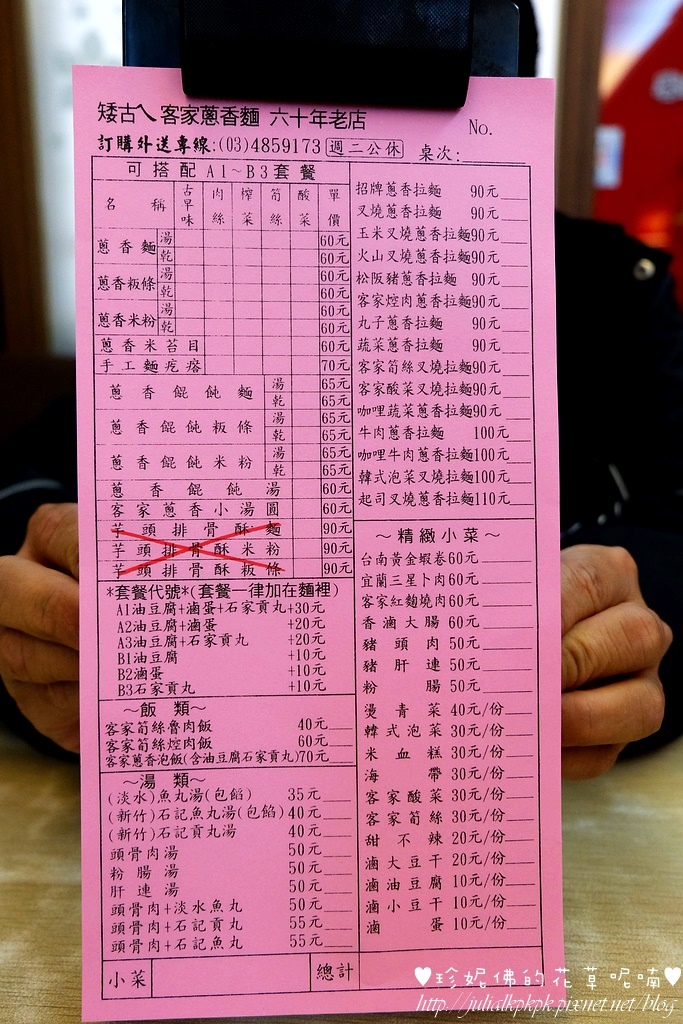 矮古ㄟ客家蔥香麵 六十年老店
No.
訂購外送專線:(03)4859173 週二公休 桌次:
可搭配A1~B3套餐
名稱 古早味 肉絲 榨菜 筍絲 酸菜 單價
蔥香麵 湯 60元
乾 60元
蔥香粄條 湯 60元
乾 60元
蔥香米粉 湯 60元
乾 60元
蔥香米苔目 60元
手工麵疙瘩 70元
蔥香餛飩麵 湯 65元
乾 65元
蔥香餛飩粄條 湯 65元
乾 65元
蔥香餛飩米粉 湯 65元
乾 65元
蔥香餛飩湯 60元
客家蔥香小湯圓 60元
芋頭排骨酥麵 90元
芋頭排骨酥米粉 90元
芋頭排骨酥粄條 90元
*套餐代號*(套餐一律加在麵裡)
A1油豆腐+滷蛋+石家貢丸+30元
A2油豆腐+滷蛋 +20元
A3油豆腐+石家貢丸 +20元
B1油豆腐 +10元
B2滷蛋 +10元
B3石家貢丸 +10元
~飯類~
客家筍絲魯肉飯 40元
客家筍絲焢肉飯 60元
客家蔥香泡飯(含油豆腐石家貢丸)70元
~湯類~
(淡水)魚丸湯(包餡) 35元
(新竹)石記魚丸湯(包餡)40元
(新竹)石記貢丸湯 40元
頭骨肉湯 50元
粉腸湯 50元
肝連湯 50元
頭骨肉+淡水魚丸 50元
頭骨肉+石記貢丸 55元
頭骨肉+石記魚丸 55元
招牌蔥香拉麵 90元
叉燒蔥香拉麵 90元
玉米叉燒蔥香拉麵90元
火山叉燒蔥香拉麵90元
松阪豬蔥香拉麵 90元
客家焢肉蔥香拉麵90元
丸子蔥香拉麵 90元
蔬菜蔥香拉麵 90元
客家筍絲叉燒拉麵90元
客家酸菜叉燒拉麵90元
咖哩蔬菜蔥香拉麵90元
牛肉蔥香拉麵 100元
咖哩牛肉蔥香拉麵100元
韓式泡菜叉燒拉麵100元
起司叉燒蔥香拉麵110元
~精緻小菜~
台南黃金蝦卷60元
宜蘭三星卜肉60元
客家紅麴燒肉60元
香滷大腸 60元
豬頭肉 50元
豬肝連 50元
粉腸 50元
燙青菜 40元/份
韓式泡菜 30元/份
米血糕 30元/份
海帶 30元/份
客家酸菜 30元/份
客家筍絲 30元/份
甜不辣 20元/份
滷大豆干 20元/份
滷油豆腐 10元/份
滷小豆干 10元/份
滷蛋 10元/份
小菜 總計
♥珍妮佛的花草呢喃♥
http://julialkpkpk.pixnet.net/blog